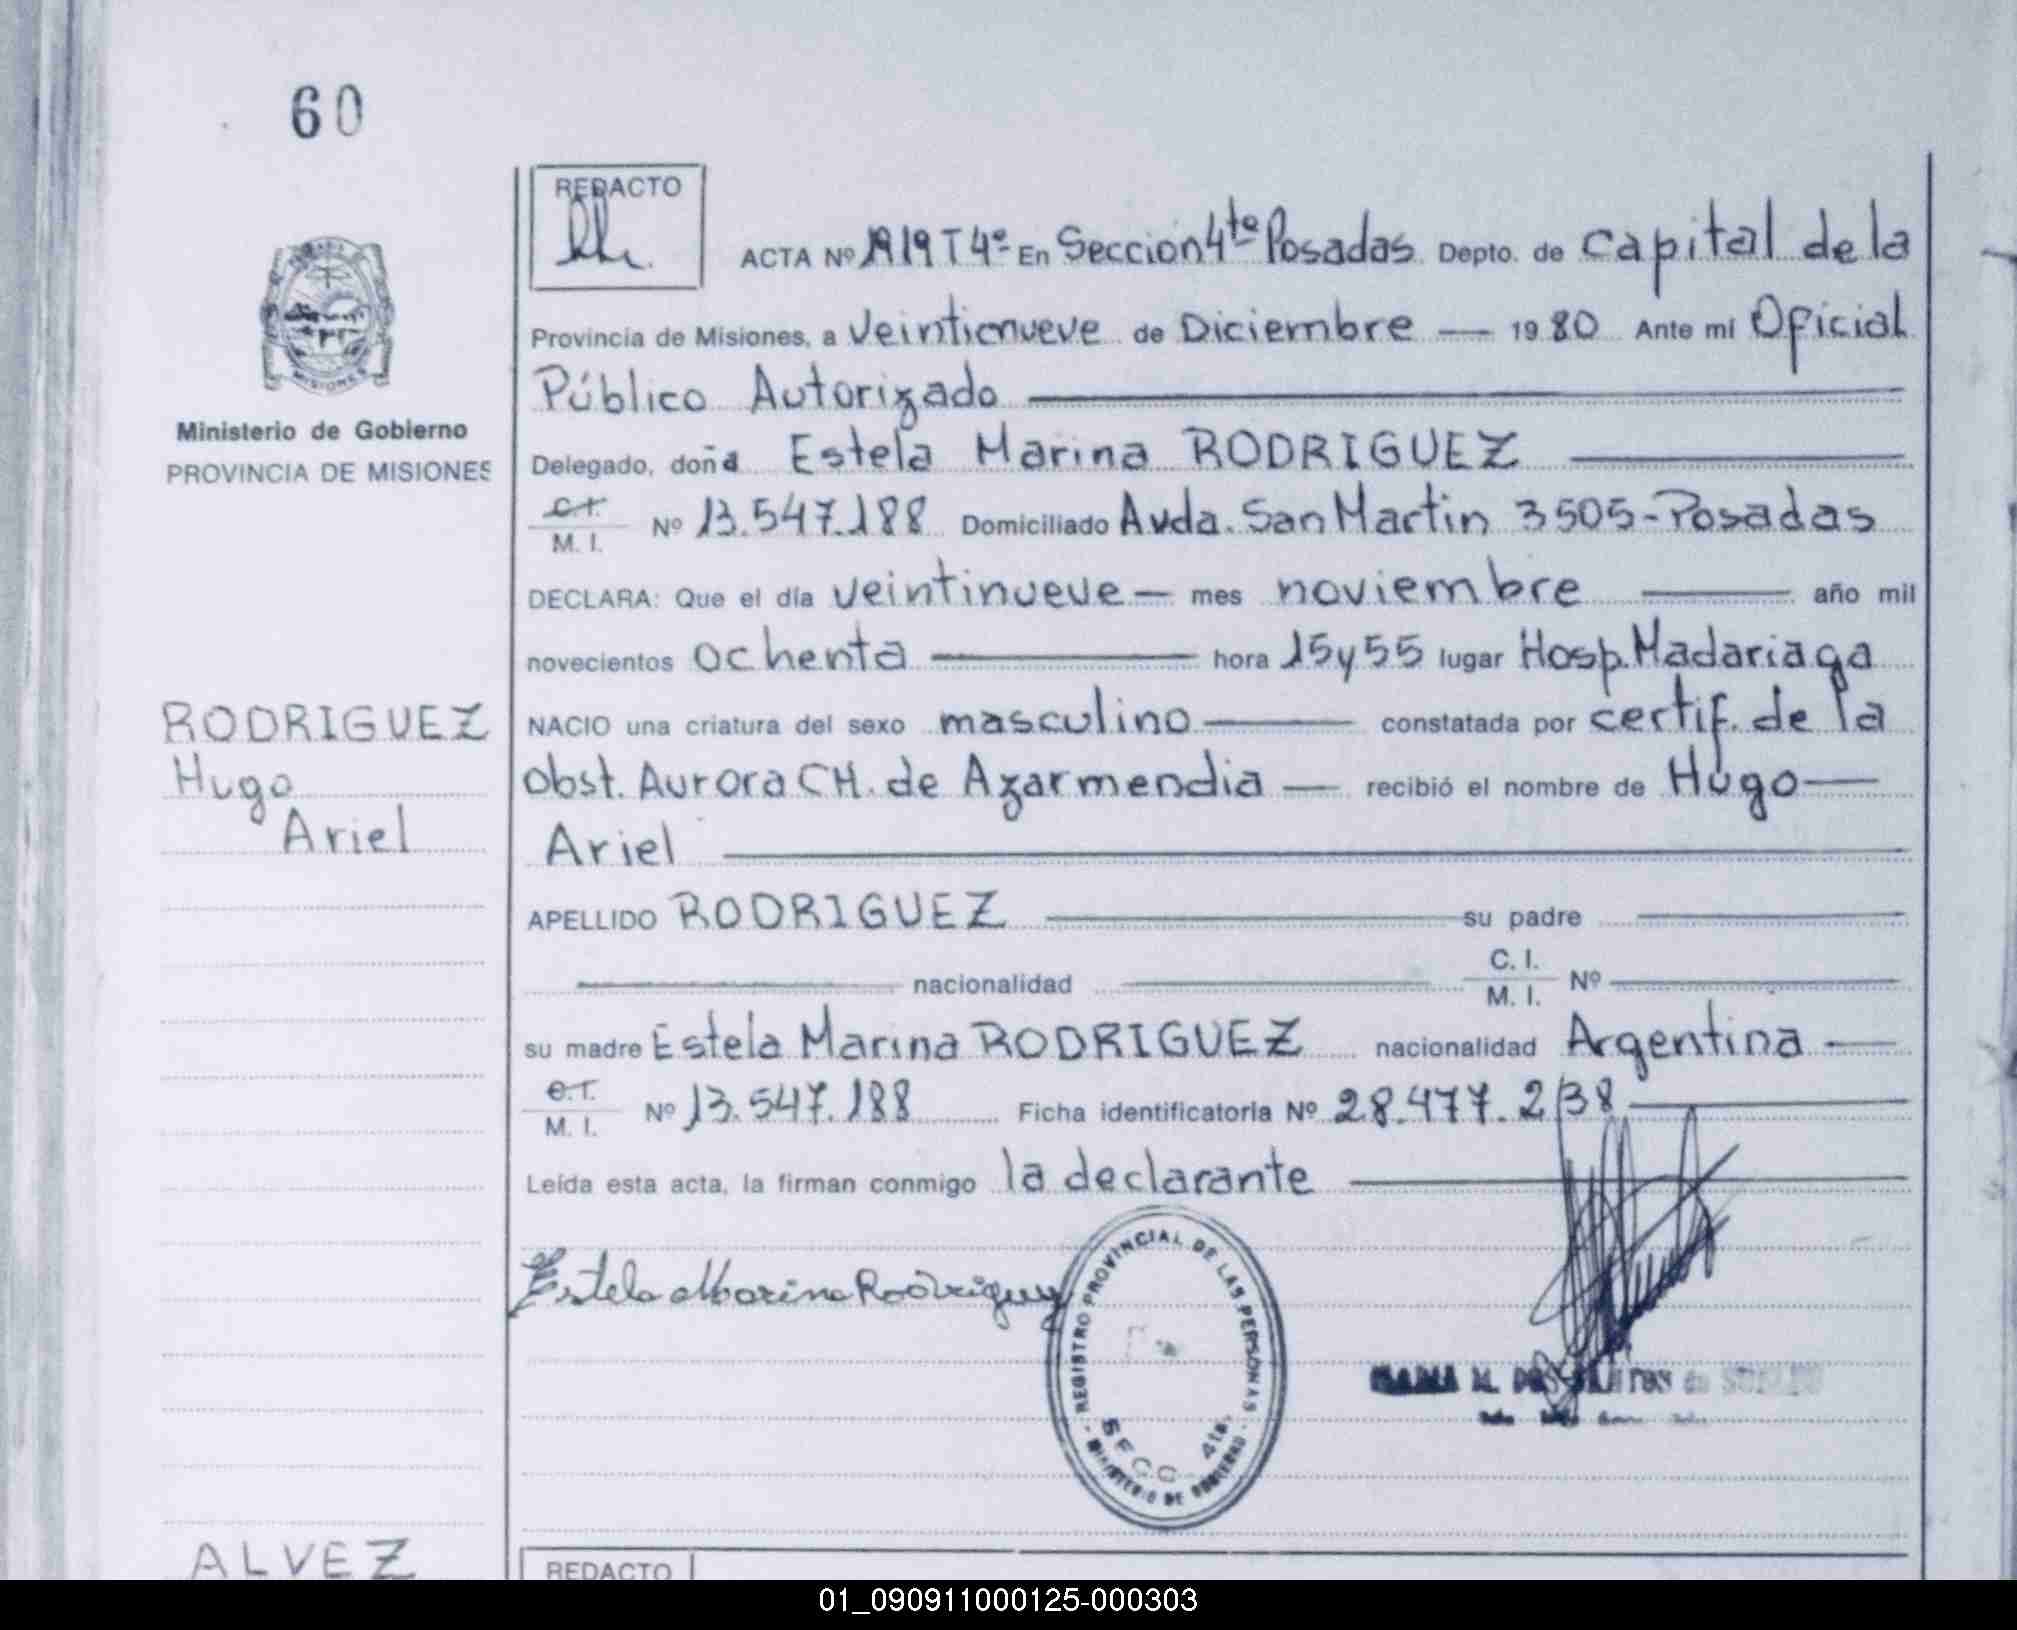 60
REDACTO
ACTA Nº 1919 T 4º En Sección 4ta Posadas Depto. de Capital de la
Provincia de Misiones, a veinticnueve de Diciembre — 1980 Ante mí Oficial
Público Autorizado
Ministerio de Gobierno
PROVINCIA DE MISIONES
Delegado, doña Estela Marina RODRIGUEZ
C.I.
M. I. Nº 13.547.188 Domiciliado Avda. San Martin 3505-Posadas
DECLARA: Que el día veintinueve — mes noviembre año mil
novecientos ochenta hora 15 y 55 lugar Hosp. Madariaga
RODRIGUEZ
Hugo
Ariel
NACIO una criatura del sexo masculino constatada por certif. de la
Obst. Aurora CH. de Azarmendia — recibió el nombre de Hugo —
Ariel
APELLIDO RODRIGUEZ su padre
nacionalidad C. I.
M. I. Nº
su madre Estela Marina RODRIGUEZ nacionalidad Argentina —
C.I.
M. I. Nº 13.547.188 Ficha identificatoria Nº 28.477.238
Leída esta acta, la firman conmigo la declarante
Estela Marina Rodriguez
REGISTRO PROVINCIAL DE LAS PERSONAS
SECC. 4ta.
MINISTERIO DE GOBIERNO
ALVEZ
REDACTO
01_090911000125-000303